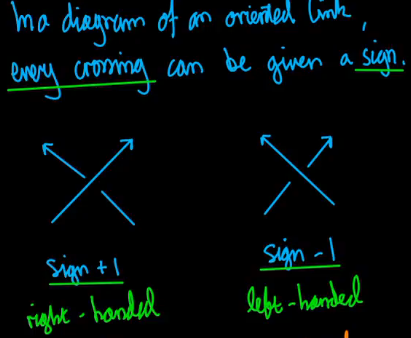 In a diagram of an oriented link,
every crossing can be given a sign.
sign +1
sign -1
right-handed
left-handed